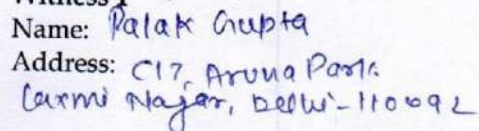 Name: Palak Gupta
Address: C17, Aruna Park
Laxmi Nagar, Delhi-110092